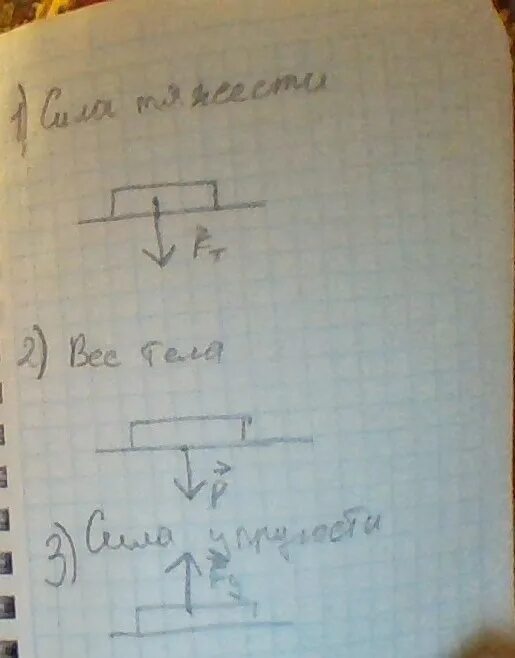 1) Сила тяжести
Fт
2) Вес тела
P
3) Сила упругости
Fу